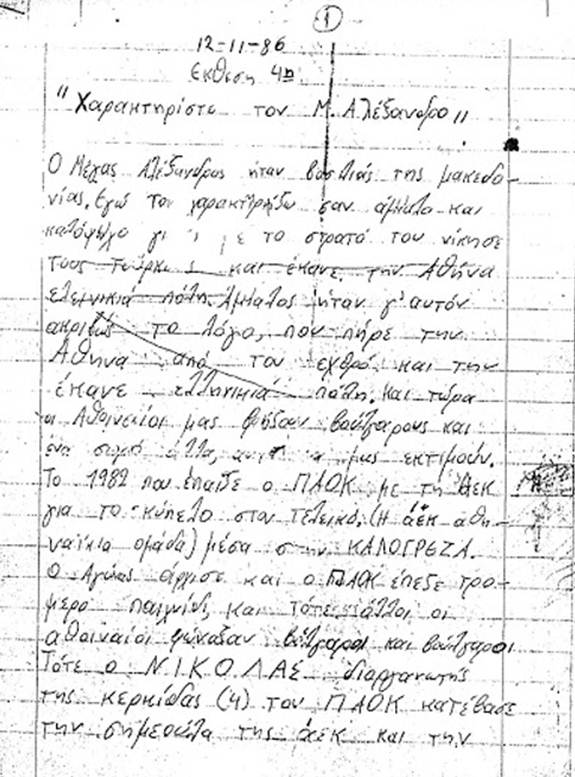 1
12-11-86
Εκθεση 4η
"Χαρακτηρίστε τον Μ. Αλέξανδρο"
Ο Μέγας Αλέξανδρος ήταν βασιλιάς της μακεδο-
νίας. Εγώ τον χαρακτηρίζω σαν άμυαλο και
κατόψυχο με το στρατό του νίκησε
τους Τούρκους και έκανε την Αθήνα
ελεινικιά πόλη. Άμυαλος ήταν γι' αυτόν
ακριβώς το λόγο, που πήρε την
Αθηνα από τον εχθρό και την
έκανε ελληνικιά πόλη. Και τώρα
οι Αθηνείοι μας φωνάζουν βούλγαρους και
ένα σωρό άλλα, αντί να μας εκτιμούν.
Το 1982 που έπαιζε ο ΠΑΟΚ με τη ΑΕΚ
για το κύπελο στον τελεικό, (Η άεκ αθη-
ναϊκια ομάδα) μέσα στην ΚΑΛΟΓΡΕΖΑ.
Ο Αγώνας άρχισε και ο ΠΑΟΚ έπεζε τρο-
μερο παιχνίδι, και τότε άλλοι οι
αθοιναίοι φώναξαν βούλγαροι και βούλγαροι
Τότε ο Ν.Ι.Κ.Ο.Λ.ΑΣ διοργανωτής
της κερκίδας (4) του ΠΑΟΚ κατέβασε
την σημεούλα της άεκ και την